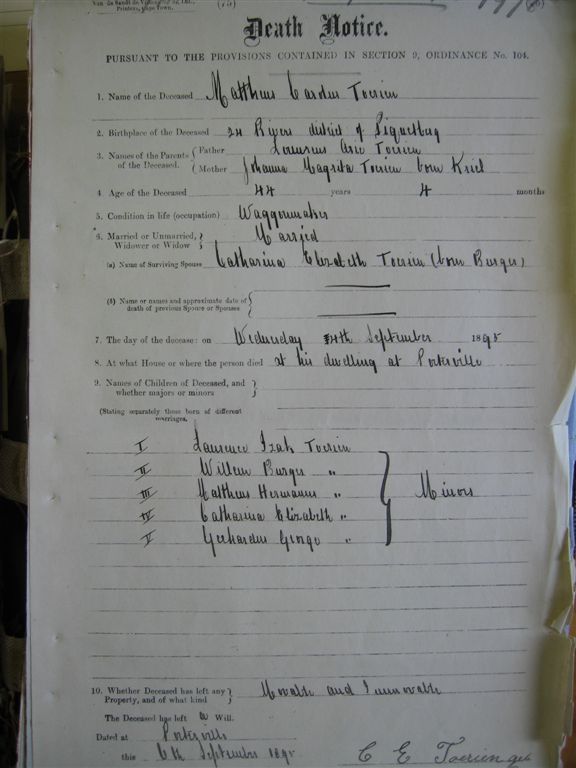 Van de Sandt de Villiers
Printers, Cape Town.
Death Notice.
PURSUANT TO THE PROVISIONS CONTAINED IN SECTION 9, ORDINANCE No. 104.
1. Name of the Deceased Mattheus Cardus Toerien
2. Birthplace of the Deceased 24 Rivers district of Piquetberg
3. Names of the Parents of the Deceased. Father Lourens Toerien
Mother Johanna Magreta Toerien born Kriel
4 Age of the Deceased 44 years 4 months
5. Condition in life (occupation) Waggonmaker
6. Married or Unmarried, Widower or Widow Married
(a) Name of Surviving Spouse Catharina Elizabeth Toerien (born Burger)
(b) Name or names and approximate date of death of previous Spouse or Spouses
7. The day of the decease: on Wednesday 4th September 1895
8. At what House or where the person died at his dwelling at Porterville
9. Names of Children of Deceased, and whether majors or minors
(Stating separately those born of different marriages.
I Laurence Izak Toerien
II Willem Burger "
III Mattheus Hermanus "
IV Catharina Elizabeth "
V Gerhardus George "
Minors
10. Whether Deceased has left any Property, and of what kind Movable and Immovable
The Deceased has left a Will.
Dated at Porterville
this 6th September 1895
C E Toerien